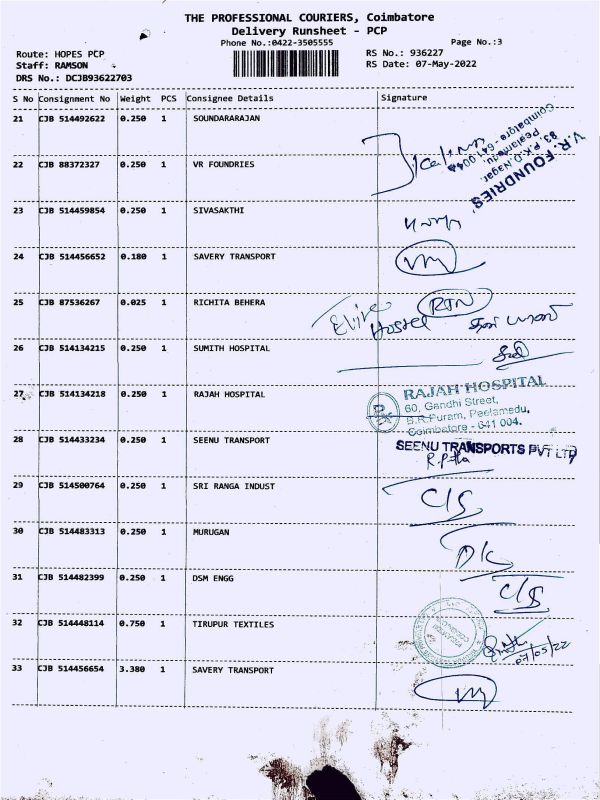 THE PROFESSIONAL COURIERS, Coimbatore
Delivery Runsheet - PCP
Phone No.:0422-3505555
Page No.:3
Route: HOPES PCP
RS No.: 936227
Staff: RAMSON
RS Date: 07-May-2022
DRS No.: DCJB93622703
S No Consignment No Weight PCS Consignee Details Signature
21 CJB 514492622 0.250 1 SOUNDARARAJAN
22 CJB 88372327 0.250 1 VR FOUNDRIES
V.R. FOUNDRIES
83, P.K.D. Nagar,
Peelamedu,
Coimbatore - 641 004.
23 CJB 514459854 0.250 1 SIVASAKTHI
24 CJB 514456652 0.180 1 SAVERY TRANSPORT
25 CJB 87536267 0.025 1 RICHITA BEHERA
Elite Hostel RTN
26 CJB 514134215 0.250 1 SUMITH HOSPITAL
27 CJB 514134218 0.250 1 RAJAH HOSPITAL
RAJAH HOSPITAL
60, Gandhi Street,
B.R.Puram, Peelamedu,
Coimbatore - 641 004.
28 CJB 514433234 0.250 1 SEENU TRANSPORT
SEENU TRANSPORTS PVT LTD
29 CJB 514500764 0.250 1 SRI RANGA INDUST
C/S
30 CJB 514483313 0.250 1 MURUGAN
DK
31 CJB 514482399 0.250 1 DSM ENGG
C/S
32 CJB 514448114 0.750 1 TIRUPUR TEXTILES
07/05/22
33 CJB 514456654 3.380 1 SAVERY TRANSPORT